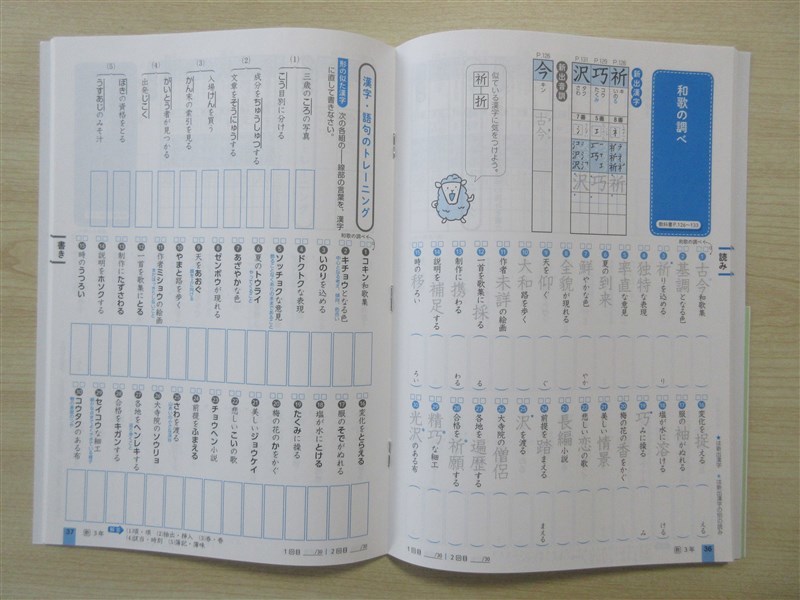 和歌の調べ
教科書P.126~133
新出漢字
祈
巧
沢
新出音訓
今
古今
似ている漢字に気をつけよう。
祈
折
読み
和歌の調べ
古今和歌集
基調となる色
祈りを込める
独特な表現
率直な意見
夏の到来
鮮やかな色
全貌が現れる
天を仰ぐ
大和路を歩く
作者未詳の絵画
一首を歌集に採る
制作に携わる
説明を補足する
時の移ろい
変化を捉える
服の袖がぬれる
塩が水に溶ける
巧みに操る
梅の花の香をかぐ
美しい情景
悲しい恋の歌
長編小説
前提を踏まえる
沢を渡る
大寺院の僧侶
各地を遍歴する
合格を祈願する
精巧な細工
光沢のある布
1回目 /30 2回目 /30
3年
36
漢字・語句のトレーニング
形の似た漢字
次の各組の――線部の言葉を、漢字
に直して書きなさい。
(1)
三歳のころの写真
こう目別に分ける
(2)
成分をちゅうしゅつする
文章をそうにゅうする
(3)
入場けんを買う
かん末の索引を見る
(4)
がいとう者が見つかる
出発じこく
(5)
ぼきの資格をとる
うすあじのみそ汁
書き
和歌の調べ
コキン和歌集
キチョウとなる色
いのりを込める
ドクトクな表現
ソッチョクな意見
夏のトウライ
あざやかな色
ゼンボウが現れる
天をあおぐ
やまと路を歩く
作者ミショウの絵画
一首を歌集にとる
制作にたずさわる
説明をホソクする
時のうつろい
変化をとらえる
服のそでがぬれる
塩が水にとける
たくみに操る
梅の花のかをかぐ
美しいジョウケイ
悲しいこいの歌
チョウヘン小説
前提をふまえる
さわを渡る
大寺院のソウリョ
各地をヘンレキする
合格をキガンする
セイコウな細工
コウタクのある布
1回目 /30 2回目 /30
37
3年